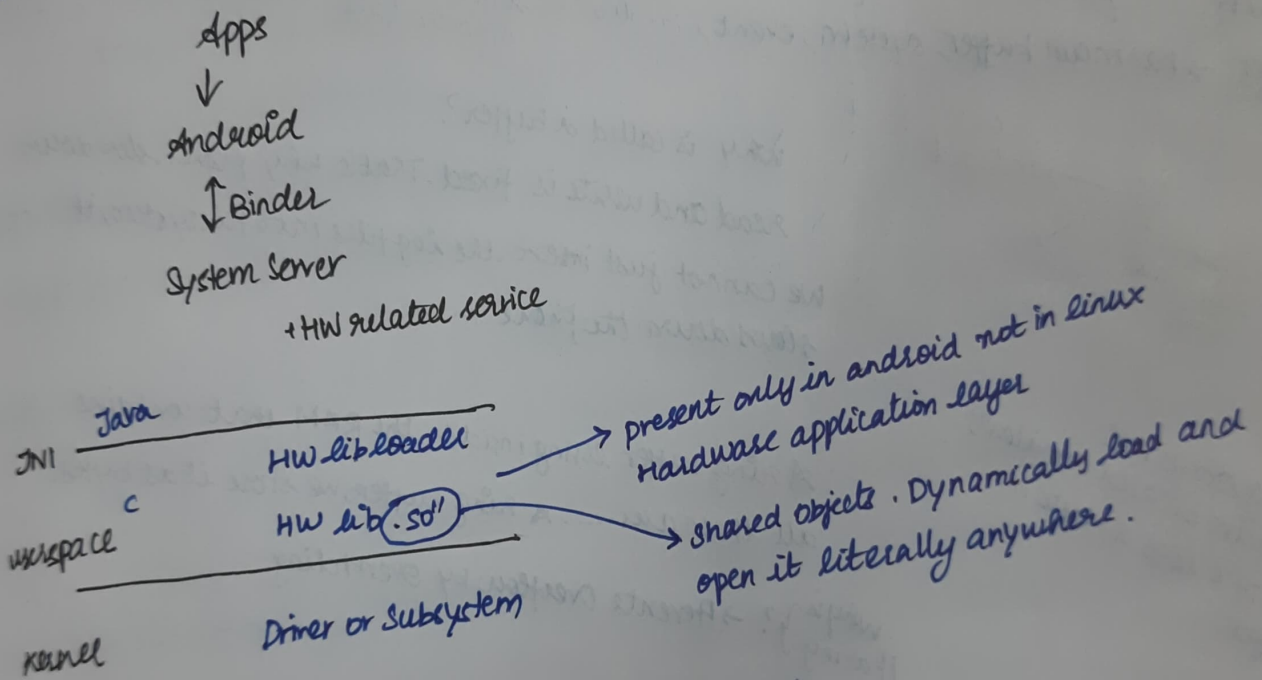 Apps
Android
Binder
System Server
+HW related service
Java
JNI
HW lib loader
present only in android not in linux
Hardware application layer
C
HW lib .so"
shared objects. Dynamically load and
open it literally anywhere.
userspace
Driver or Subsystem
Kernel